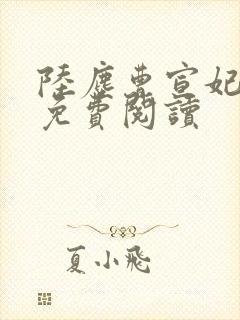 陸塵曹宣妃
免費閱讀
夏小飛